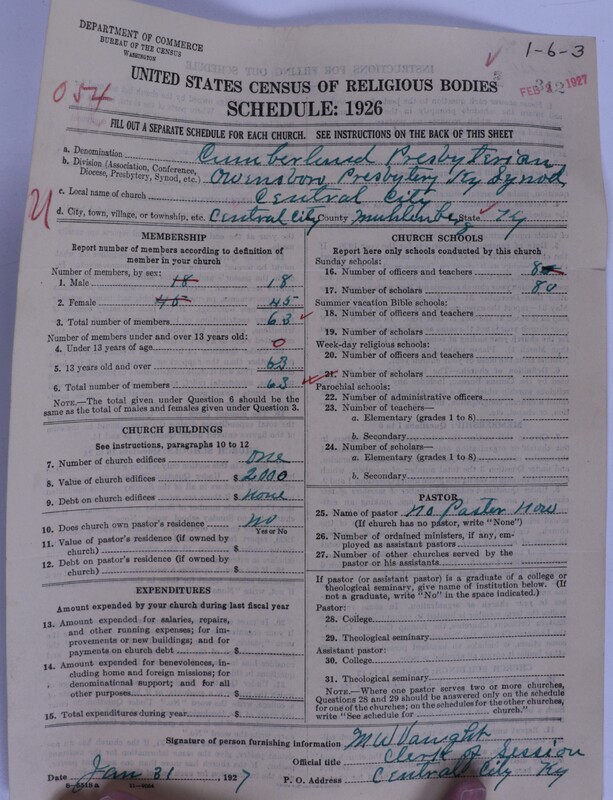 DEPARTMENT OF COMMERCE
BUREAU OF THE CENSUS
WASHINGTON
1-6-3
FEB 2 1927
054
UNITED STATES CENSUS OF RELIGIOUS BODIES
SCHEDULE: 1926
FILL OUT A SEPARATE SCHEDULE FOR EACH CHURCH. SEE INSTRUCTIONS ON THE BACK OF THIS SHEET
a. Denomination Cumberland Presbyterian
b. Division (Association, Conference, Diocese, Presbytery, Synod, etc.) Owensboro Presbytery Ky Synod
c. Local name of church Central City
d. City, town, village, or township, etc. Central City County Muhlenberg State Ky
MEMBERSHIP
Report number of members according to definition of
member in your church
Number of members, by sex:
1. Male 18 18
2. Female 45 45
3. Total number of members 63
Number of members under and over 13 years old:
4. Under 13 years of age 0
5. 13 years old and over 63
6. Total number of members 63
NOTE.—The total given under Question 6 should be
the same as the total of males and females given under Question 3.
CHURCH BUILDINGS
See instructions, paragraphs 10 to 12
7. Number of church edifices one
8. Value of church edifices $ 2000
9. Debt on church edifices $ none
10. Does church own pastor's residence No
Yes or No
11. Value of pastor's residence (if owned by
church) $
12. Debt on pastor's residence (if owned by
church) $
EXPENDITURES
Amount expended by your church during last fiscal year
13. Amount expended for salaries, repairs,
and other running expenses; for im-
provements or new buildings; and for
payments on church debt $
14. Amount expended for benevolences, in-
cluding home and foreign missions; for
denominational support; and for all
other purposes $
15. Total expenditures during year $
CHURCH SCHOOLS
Report here only schools conducted by this church
Sunday schools:
16. Number of officers and teachers 8
17. Number of scholars 80
Summer vacation Bible schools:
18. Number of officers and teachers
19. Number of scholars
Week-day religious schools:
20. Number of officers and teachers
21. Number of scholars
Parochial schools:
22. Number of administrative officers
23. Number of teachers—
a. Elementary (grades 1 to 8)
b. Secondary
24. Number of scholars—
a. Elementary (grades 1 to 8)
b. Secondary
PASTOR
25. Name of pastor No Pastor Now
(If church has no pastor, write "None")
26. Number of ordained ministers, if any, em-
ployed as assistant pastors
27. Number of other churches served by the
pastor or his assistants
If pastor (or assistant pastor) is a graduate of a college or
theological seminary, give name of institution below. (If
not a graduate, write "No" in the space indicated.)
Pastor:
28. College
29. Theological seminary
Assistant pastor:
30. College
31. Theological seminary
NOTE.—Where one pastor serves two or more churches,
Questions 28 and 29 should be answered only on the schedule
for one of the churches; on the schedules for the other churches,
write "See schedule for church."
Signature of person furnishing information M W Vaught
Official title Clerk of Session
Date Jan 31, 1927 P. O. Address Central City Ky